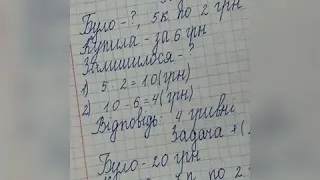 Було - ?, 5 к по 2 грн
Купила - за 6 грн
Залишилося - ?
1) 5 · 2 = 10 (грн)
2) 10 - 6 = 4 (грн)
Відповідь: 4 гривні
Задача
Було - 20 грн
по 2